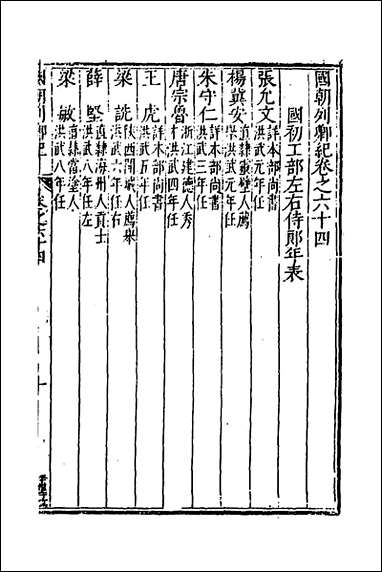 國朝列卿紀卷之六十四
國初工部左右侍郎年表
張允文 詳本部尚書 洪武元年任
楊冀安 直隸靈壁人薦舉洪武元年任
朱守仁 詳本部尚書 洪武三年任
唐宗魯 浙江建德人秀才洪武四年任
王虎 詳本部尚書 洪武五年任
梁詵 陝西閿鄉人薦舉 洪武六年任右
薛堅 直隸海州人貢士 洪武八年任左
梁敏 直隸當塗人 洪武八年任
國朝列卿紀 卷之六十四